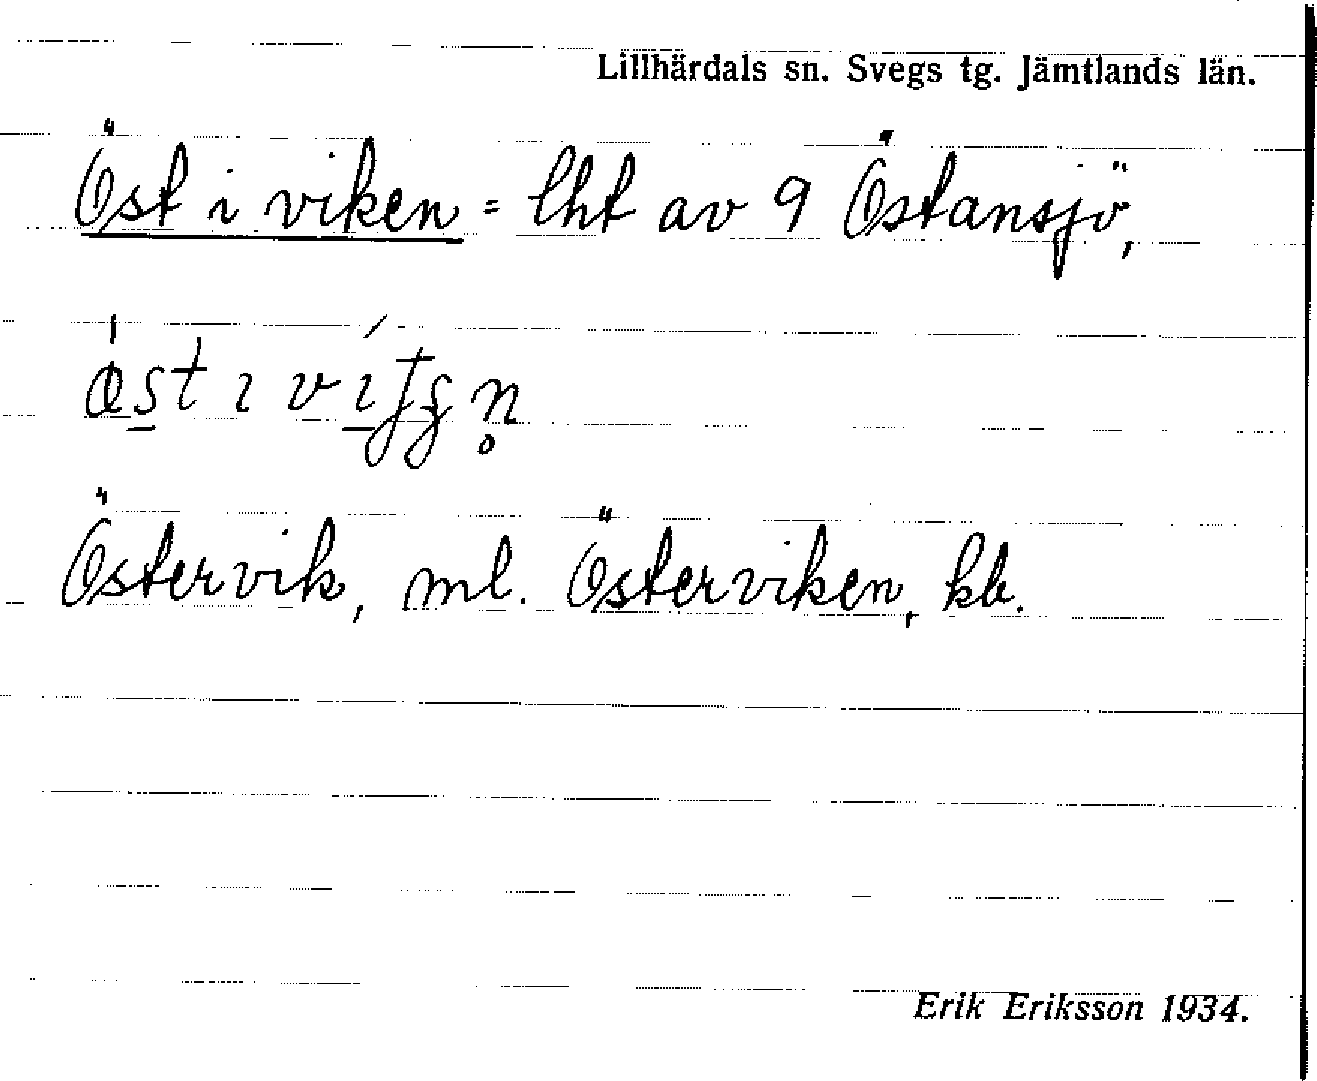 Lillhärdals sn. Svegs tg. Jämtlands län.
Öst i viken = lht av 9 Östansjö,
Östervik, ml. Österviken, kb.
Erik Eriksson 1934.